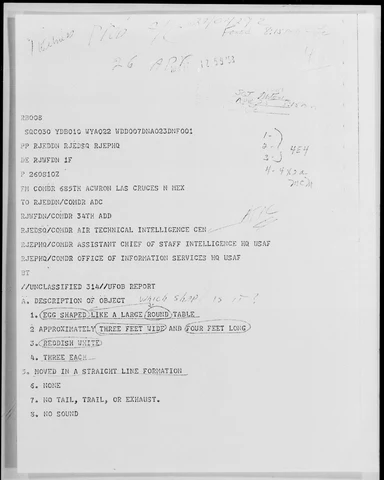 26 APR 11 59 '58
RB008
SQC030 YDB010 WYA022 WDD007DNA023DNF001
PP RJEDDN RJEDSQ RJEPHQ
DE RJWFDN 1F
P 260810Z
FM COMDR 685TH ACWRON LAS CRUCES N MEX
TO RJEDDN/COMDR ADC
RJWFDN/COMDR 34TH ADD
RJEDSQ/COMDR AIR TECHNICAL INTELLIGENCE CEN
RJEPHQ/COMDR ASSISTANT CHIEF OF STAFF INTELLIGENCE HQ USAF
RJEPHQ/COMDR OFFICE OF INFORMATION SERVICES HQ USAF
BT
//UNCLASSIFIED 314//UFOB REPORT
A. DESCRIPTION OF OBJECT which shap is it?
1. EGG SHAPED LIKE A LARGE ROUND TABLE
2 APPROXIMATELY THREE FEET WIDE AND FOUR FEET LONG
3. REDDISH WHITE
4. THREE EACH
5. MOVED IN A STRAIGHT LINE FORMATION
6. NONE
7. NO TAIL, TRAIL, OR EXHAUST.
8. NO SOUND